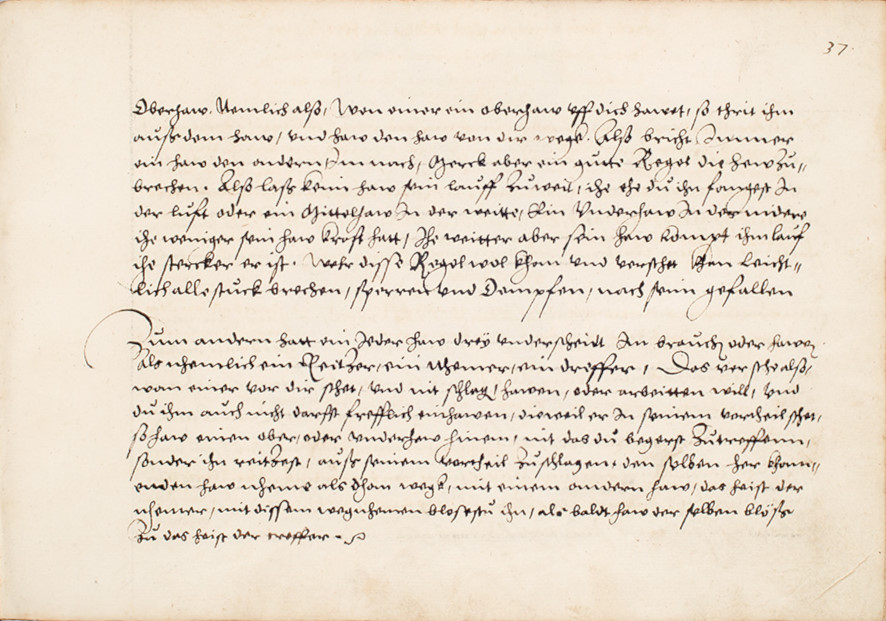 37.
Oberhaw. Nemlich alß, Wen einer ein oberhaw vff dich hawet, so thrit ihm
auß dem haw, vnd haw den haw von dir wegk. Alß bricht Immer
ein haw den andern, Im nach, Merck aber ein gutte Regel die hew zu„
brechen. Alß lass kein haw sein lauff zu weit, ihe ehe du ihn fangest In
der luft oder ein Mittelhaw In der weitte, Ein Vnderhaw In der nidere
ihe weniger sein haw kroft hatt, Ihe weitter aber sein haw kompt ihm lauf
ihe stercker er ist. Wehr disse Regel wol khan vnd verstehet kan leicht„
lich alle stuck brechen, sperren vnd Dempfen, nach seim gefallen
Zum andern hatt ein Jeder haw drey vnderscheidt Im brauch oder hawen
Als nhemlich ein Reitzer, ein Nhemer, ein dreffer, Das verstehe alß,
wan einer vor dir stet, vnd nit schlag, hawen, oder arbeitten will, vnd
du ihm auch nicht darfst trefflich einhawen, dieweil er In seinem vortheil stet,
so haw einen ober, oder vnderhaw hinein, nit das du begerst zutreffenn,
sonder ihn reitzest, auß seinem vortheil zuschlagen, den selben her kham„
enden haw nheme als dhan wegk, mit einem andern haw, das heist der
nhemer, mit dissem wegnhemen blosestu ihn, als baldt haw der selben blöße
zu das heist der treffer.